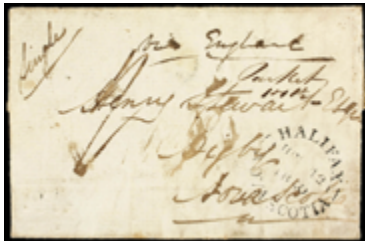 Single
via England
Packet
Henry Stewart Esqr
Digby
Nova Scotia
HALIFAX
SCOTIA